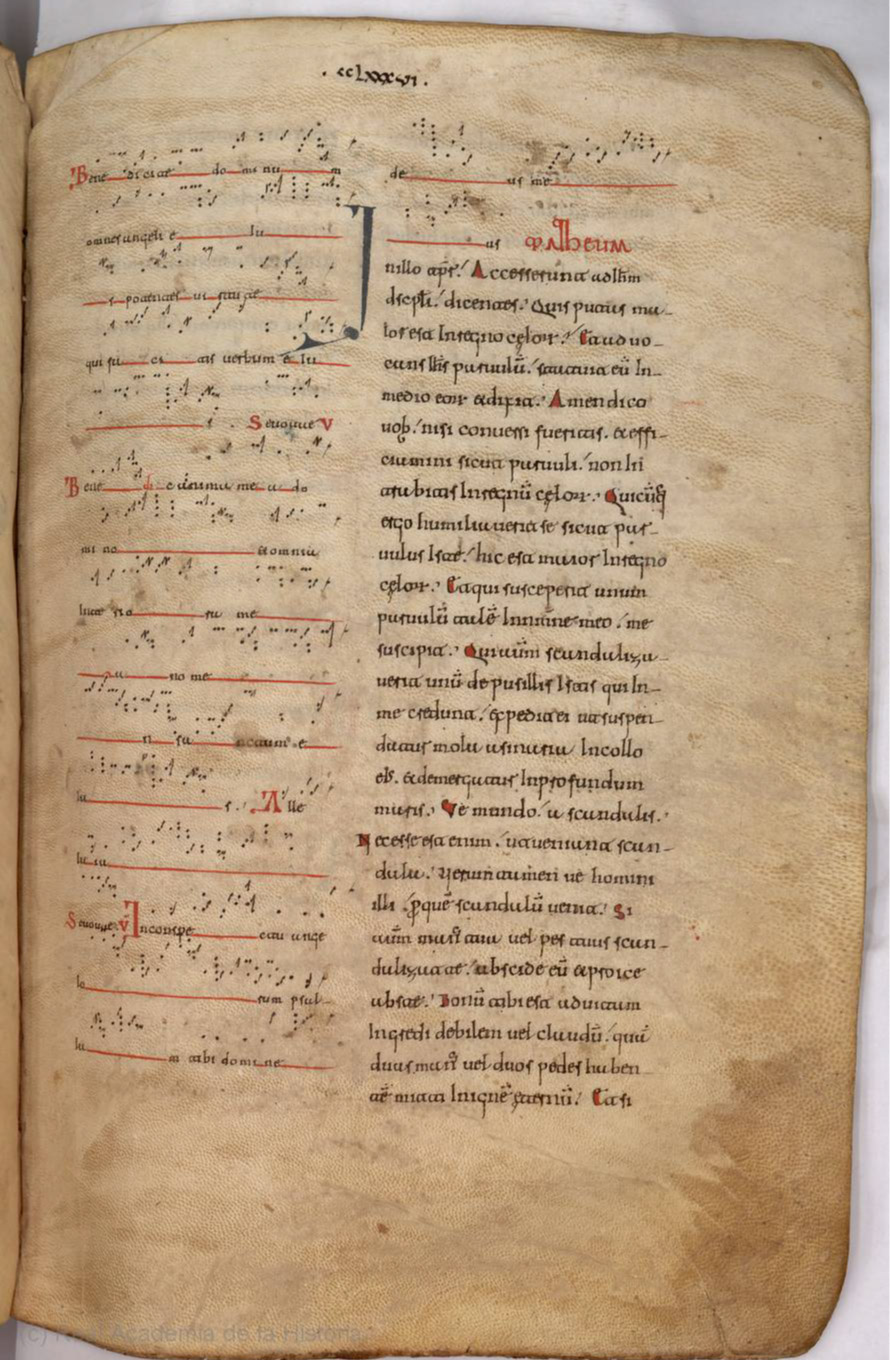 . ccLxxxvi .
Bene dicite do mi nu m
omnes angeli e iu
s potentes ui rtute
qui fa ci tis uerbum e iu
s . Seuouae V
Bene di c anima me a do
mi no et omnia
inte rio ra me
a no me
n sa nctum e
iu s . Alle
lu ia
Seuouae V In conspe ctu ange
lo rum psal
la m tibi domine
de us me
us MATHEUM
In illo tpr̄. Accesserunt ad ihm
discpli. dicentes. Quis putas ma
ior est In regno cęlorr. Et aduo
cans ihs paruulū. statuit eū In
medio eorr et dixit. Amen dico
uob. nisi conuersi fueritis. et effi
ciamini sicut paruuli. non In
trabitis In regnū cęlorr. Quicūq
ergo humiliauerit se sicut par
uulus Iste. hic est maior In regno
cęlorr. Et qui susceperit unum
paruulū talē In nomine meo. me
suscipit. Qui autm̄ scandaliza
uerit unū de pusillis Istis qui In
me credunt. expedit ei ut suspen
datur mola asinaria In collo
eis. et demergatur In profundum
maris. Ve mundo. a scandalis.
Necesse est enim. ut ueniant scan
dala. Uerum tamen ue homini
illi. p quē scandalū uenit. Si
autm̄ man tua uel pes tuus scan
dalizat te. abscide eū et proice
abs te. Bonū tibi est ad uitam
Ingredi debilem uel claudū. quā
duas man uel duos pedes haben
tē mitti In ignē ęternū. Et si
(c) Real Academia de la Historia